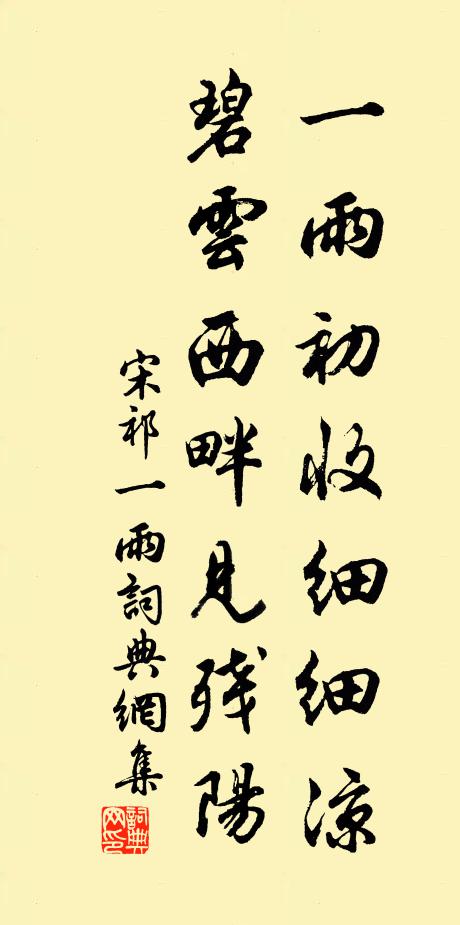 一雨初收细细凉
碧雲西畔見残陽
宋祁一雨詞典網集
詞典网印